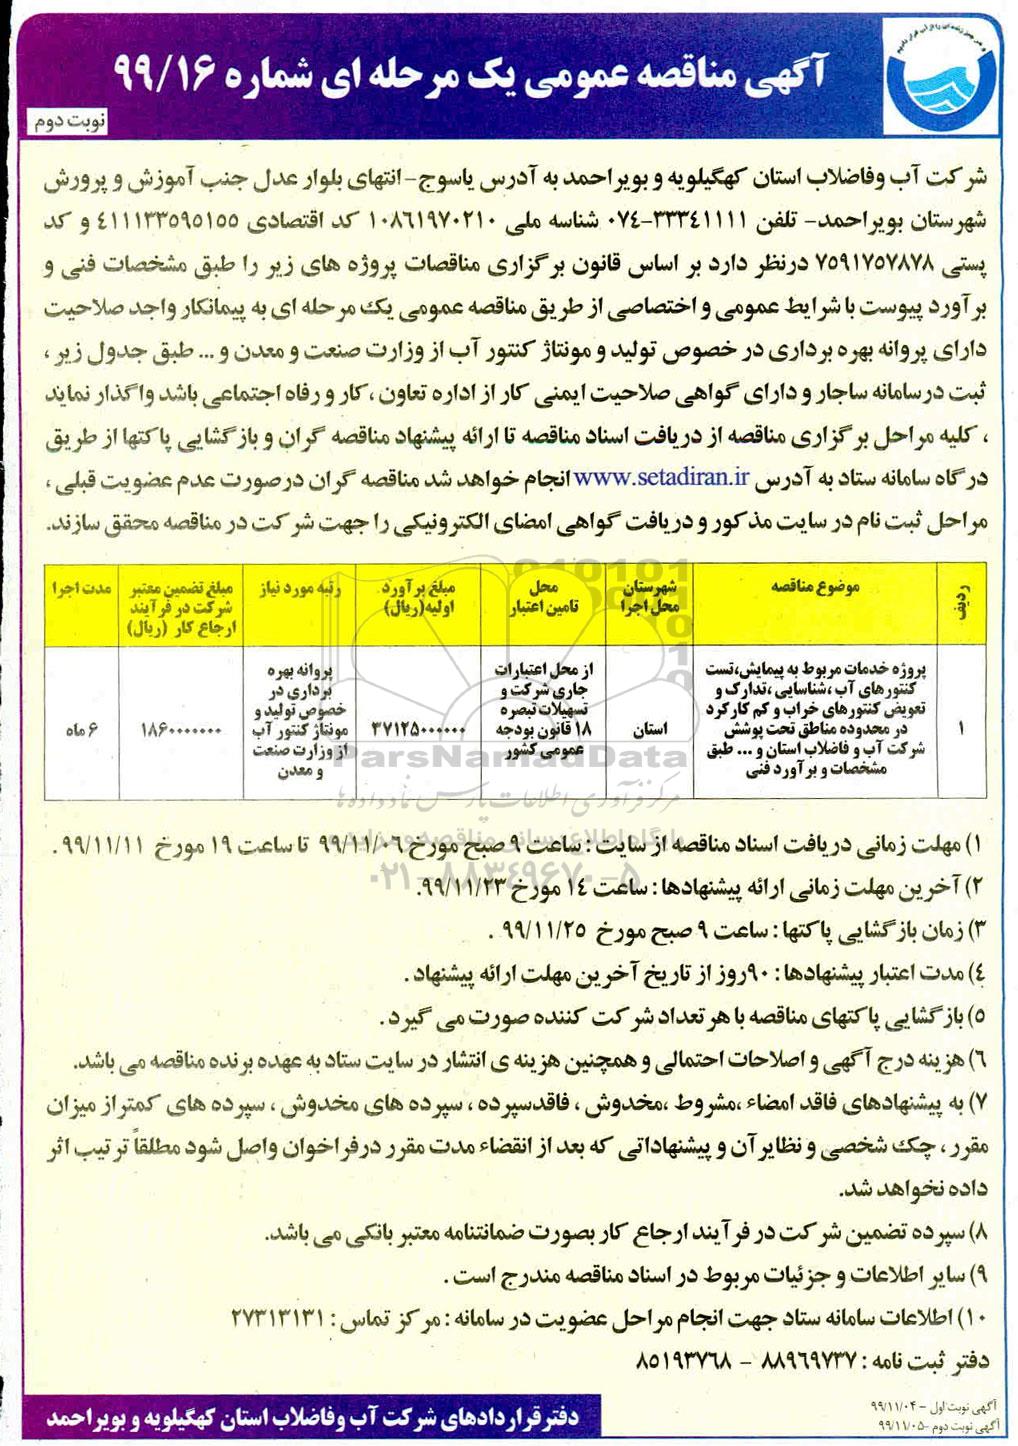 آگهی مناقصه عمومی یک مرحله ای شماره ۹۹/۱۶
نوبت دوم
شرکت آب وفاضلاب استان کهگیلویه و بویراحمد به آدرس یاسوج-انتهای بلوار عدل جنب آموزش و پرورش
شهرستان بویراحمد- تلفن ۳۳۳٤۱۱۱۱-۰۷٤ شناسه ملی ۱۰۸٦۱۹۷۰۲۱۰ کد اقتصادی ٤۱۱۱۳۳۵۹۵۱۵۵ و کد
پستی ۷۵۹۱۷۵۷۸۷۸ درنظر دارد بر اساس قانون برگزاری مناقصات پروژه های زیر را طبق مشخصات فنی و
برآورد پیوست با شرایط عمومی و اختصاصی از طریق مناقصه عمومی یک مرحله ای به پیمانکار واجد صلاحیت
دارای پروانه بهره برداری در خصوص تولید و مونتاژ کنتور آب از وزارت صنعت و معدن و ... طبق جدول زیر ،
ثبت درسامانه ساجار و دارای گواهی صلاحیت ایمنی کار از اداره تعاون ، کار و رفاه اجتماعی باشد واگذار نماید
، کلیه مراحل برگزاری مناقصه از دریافت اسناد مناقصه تا ارائه پیشنهاد مناقصه گران و بازگشایی پاکتها از طریق
درگاه سامانه ستاد به آدرس www.setadiran.ir انجام خواهد شد مناقصه گران درصورت عدم عضویت قبلی ،
مراحل ثبت نام در سایت مذکور و دریافت گواهی امضای الکترونیکی را جهت شرکت در مناقصه محقق سازند.
ردیف
موضوع مناقصه
شهرستان
محل اجرا
محل
تامین اعتبار
مبلغ برآورد
اولیه(ریال)
رتبه مورد نیاز
مبلغ تضمین معتبر
شرکت در فرآیند
ارجاع کار (ریال)
مدت اجرا
۱
پروژه خدمات مربوط به پیمایش،تست
کنتورهای آب ،شناسایی ،تدارک و
تعویض کنتورهای خراب و کم کارکرد
در محدوده مناطق تحت پوشش
شرکت آب و فاضلاب استان و ... طبق
مشخصات و برآورد فنی
استان
از محل اعتبارات
جاری شرکت و
تسهیلات تبصره
۱۸ قانون بودجه
عمومی کشور
۳۷۱۲۵۰۰۰۰۰۰
پروانه بهره
برداری در
خصوص تولید و
مونتاژ کنتور آب
از وزارت صنعت
و معدن
۱۸٦۰۰۰۰۰۰۰
۶ ماه
ParsNamadData
مرکز فرآوری اطلاعات پارس نماد داده ها
پایگاه اطلاع رسانی مناقصه و مزایده
۰۲۱-۸۸۳۴۹۶۷۰-۵
۱) مهلت زمانی دریافت اسناد مناقصه از سایت : ساعت ۹ صبح مورخ ۹۹/۱۱/۰۶ تا ساعت ۱۹ مورخ ۹۹/۱۱/۱۱ .
۲) آخرین مهلت زمانی ارائه پیشنهادها : ساعت ۱٤ مورخ ۹۹/۱۱/۲۳.
۳) زمان بازگشایی پاکتها : ساعت ۹ صبح مورخ ۹۹/۱۱/۲۵ .
٤) مدت اعتبار پیشنهادها : ۹۰روز از تاریخ آخرین مهلت ارائه پیشنهاد .
۵) بازگشایی پاکتهای مناقصه با هر تعداد شرکت کننده صورت می گیرد .
۶) هزینه درج آگهی و اصلاحات احتمالی و همچنین هزینه ی انتشار در سایت ستاد به عهده برنده مناقصه می باشد.
۷) به پیشنهادهای فاقد امضاء ،مشروط ،مخدوش ، فاقدسپرده ، سپرده های مخدوش ، سپرده های کمتراز میزان
مقرر ، چک شخصی و نظایر آن و پیشنهاداتی که بعد از انقضاء مدت مقرر درفراخوان واصل شود مطلقاً ترتیب اثر
داده نخواهد شد.
۸) سپرده تضمین شرکت در فرآیند ارجاع کار بصورت ضمانتنامه معتبر بانکی می باشد.
۹) سایر اطلاعات و جزئیات مربوط در اسناد مناقصه مندرج است .
۱۰) اطلاعات سامانه ستاد جهت انجام مراحل عضویت در سامانه : مرکز تماس : ۲۷۳۱۳۱۳۱
دفتر ثبت نامه : ۸۸۹٦۹۷۳۷ - ۸۵۱۹۳۷٦۸
آگهی نوبت اول - ۹۹/۱۱/۰۴
آگهی نوبت دوم -۹۹/۱۱/۰۵
دفتر قراردادهای شرکت آب و فاضلاب استان کهگیلویه و بویراحمد